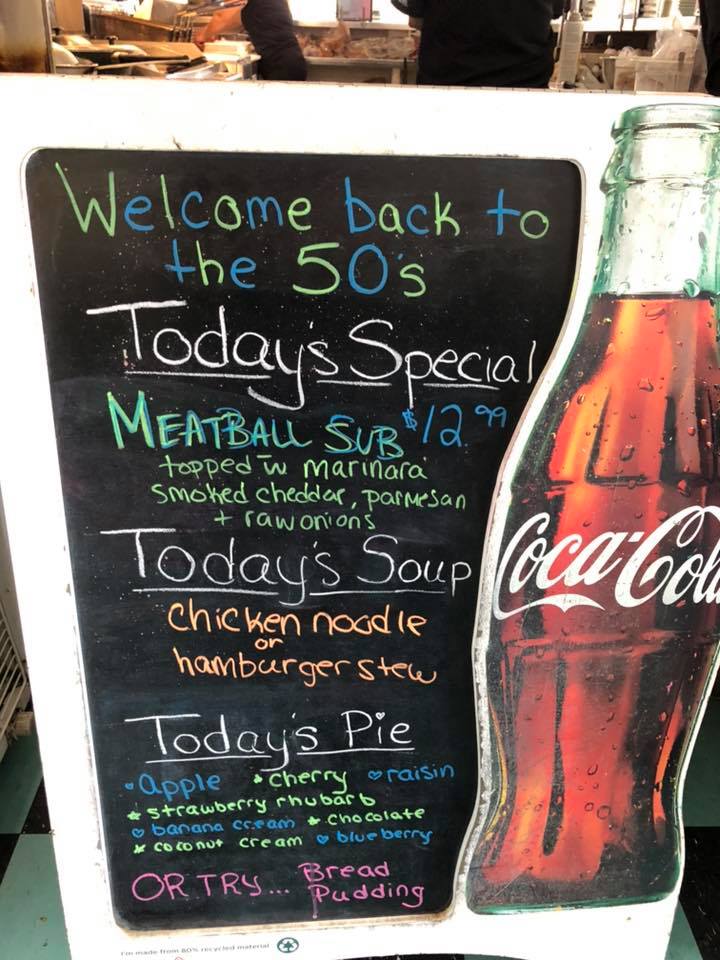 Welcome back to
the 50's
Today's Special
MEATBALL SUB $12.99
topped w marinara
smoked cheddar, parmesan
+ raw onions
Today's Soup
chicken noodle
or
hamburger stew
Today's Pie
• Apple • cherry ♡ raisin
* strawberry rhubarb
♡ banana cream * chocolate
* coconut cream ♡ blueberry
OR TRY... Bread
Pudding
Coca-Cola
I'm made from 80% recycled material